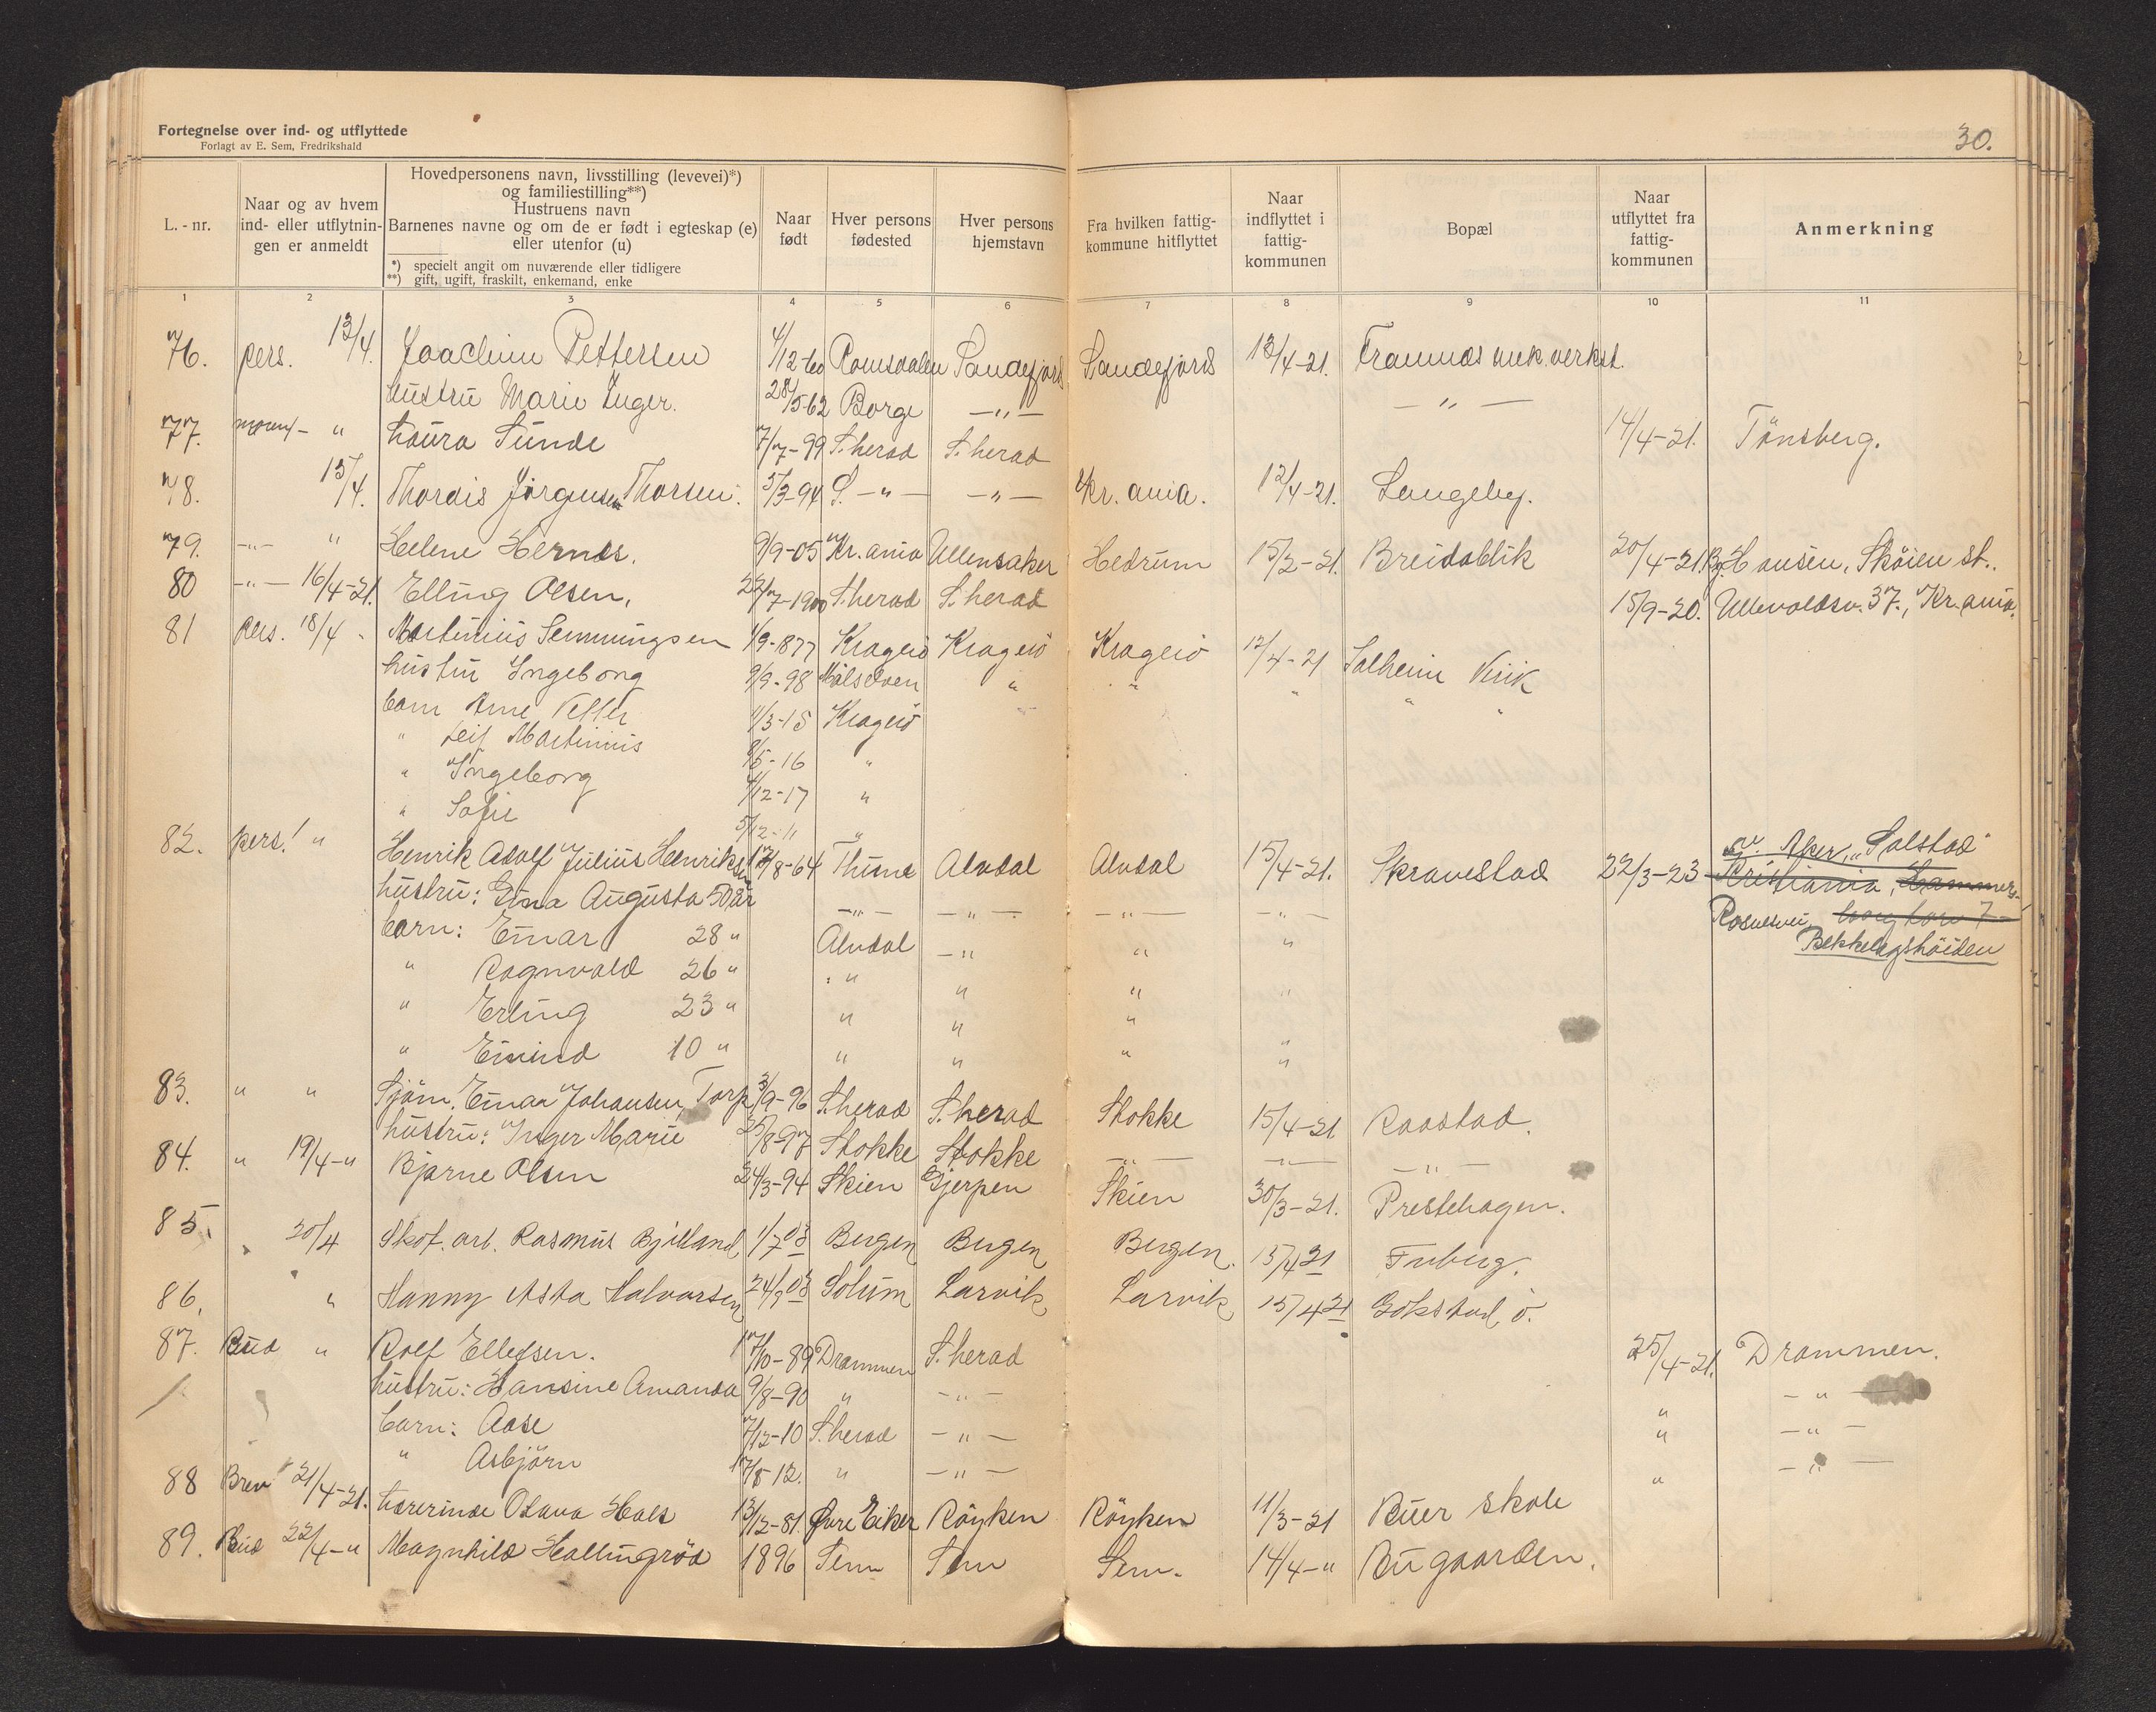 Fortegnelse over ind- og utflyttede
Forlagt av E. Sem, Fredrikshald
30.
L.-nr.
Naar og av hvem ind- eller utflytningen er anmeldt
Hovedpersonens navn, livsstilling (levevei)*)
og familiestilling**)
Hustruens navn
Barnenes navne og om de er født i egteskap (e)
eller utenfor (u)
*) specielt angit om nuværende eller tidligere
**) gift, ugift, fraskilt, enkemand, enke
Naar født
Hver persons fødested
Hver persons hjemstavn
Fra hvilken fattigkommune hitflyttet
Naar indflyttet i fattigkommunen
Bopæl
Naar utflyttet fra fattigkommunen
Anmerkning
1 2 3 4 5 6 7 8 9 10 11
76. pers. 13/4. Joachim Pettersen 4/12-60 Romsdalen Sandefjord Sandefjord 13/4-21. Framnæs mek. verkst.
hustru Marie Inger. 28/5-62 Borge -"- -"-
77. " Laura Sunde 7/7-99 S.herad S.herad 14/4-21. Tönsberg.
78. 15/4. Thordis Jörgensen Thorsen. 5/3-94 S. -"- -"- Kr.ania. 12/4-21. Langeby.
79. -"- " Helene Hernes. 9/9-05 Kr.ania Ullensaker Hedrum 15/2-21. Breidablik 20/4-21. Hansen, Sköien st..
80 -"- 16/4-21. Elling Olsen. 22/7-1900 S.herad S.herad 15/9-20. Ullevoldsv. 37, Kr.ania.
81 pers. 18/4 - Martinius Semmingsen 1/9-877 Kragerö Kragerö Kragerö 12/4-21 Solheim Virik
hustru Ingeborg 9/9-98 Målselven " " " " "
barn Arne 4/3-15 Kragerö "
" Leif Martinius 8/5-16 "
" Ingeborg 4/12-17 "
" Sofie 5/12-11 "
82. pers! " Henrik Adolf Julius Henriksen 12/8-64 Thune Alvdal Alvdal 15/4-21. Skravestad 22/3-23 Aker, "Solstad" Kristiania, Hammers-
hustru: Gina Augusta 50 år -"- -"- -"- -"- borg torv 7
barn: Einar 28 " Alvdal -"- " " Bekkelagshöiden
" Ragnvald 26 " " " " "
" Erling 23 " " " " "
" Eivind 10 " " " " "
83. " " Sjöm. Einar Johansen, Torp 3/9-96 S.herad S.herad Stokke 15/4-21 Raastad.
hustru: Inger Marie 25/8-97 Stokke Stokke -"- -"- -"-
84. " 19/4-" Bjarne Olsen 24/3-94 Skien Gjerpen Skien 30/3-21. Prestehagen.
85. " 20/4 Skof. arb. Rasmus Bjelland 1/7 03 Bergen Bergen Bergen. 15/4 21
86. " Hanny Asta Halvorsen 24/9 03 Solum Larvik Larvik 15/4 21 Gokstad, ö.
87. Bud " Rolf Ellefsen. 17/10-89 Drammen S.herad 25/4-21. Drammen.
hustru: Hansine Amanda 9/8-90 " -"- " -"-
barn: Aase 7/12-10 S.herad -"- " -"-
" Asbjörn 17/8-12. " -"- " -"-
88 Brev 21/4-21. Lærerinde Olava Hals 13/12-81. Øvre Eiker Röyken Röyken 11/3-21 Ruer skole
89. Bud 22/4-" Magnhild Hallingröd 1896 Sem Sem Sem. 14/4-" Bugaarden.